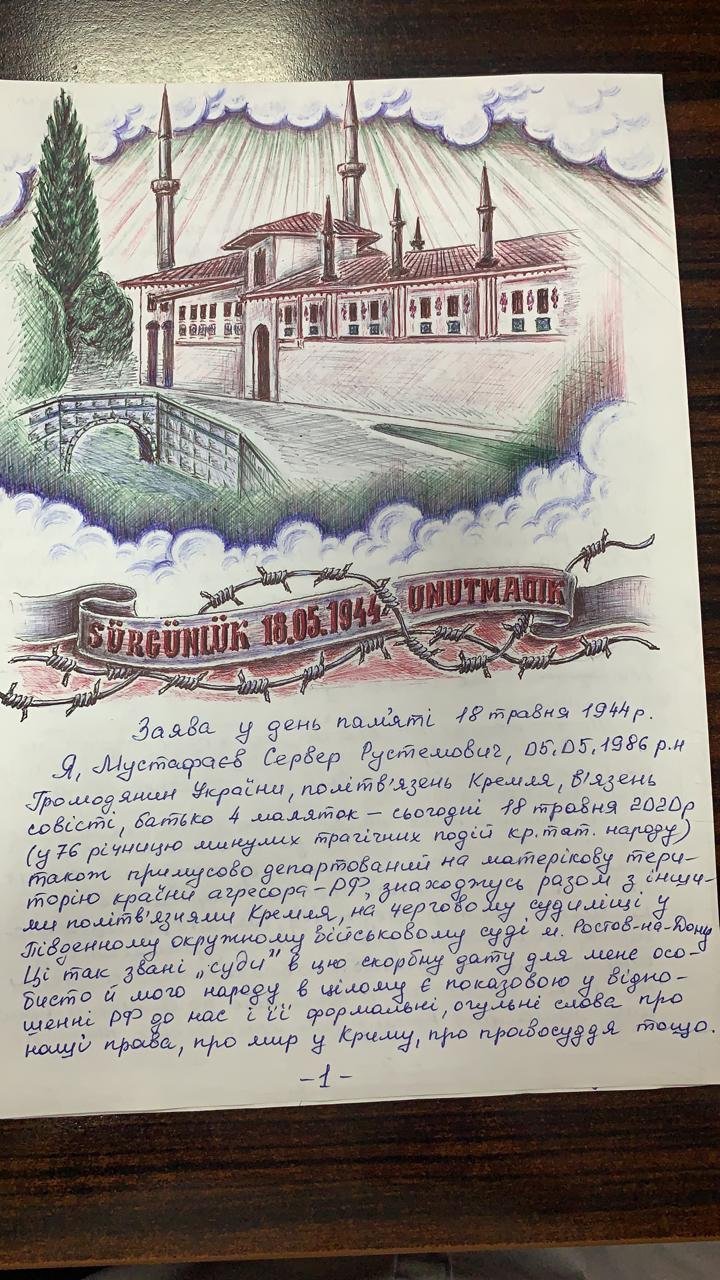 SÜRGÜNLÜK 18.05.1944 UNUTMADIK
Заява у день пам'яті 18 травня 1944 р.
Я, Мустафаєв Сервер Рустемович, 05.05.1986 р.н
Громодянин України, політв'язень Кремля, в'язень
совісті, батько 4 маляток – сьогодні 18 травня 2020р
(у 76 річницю минулих трагічних подій кр. тат. народу)
також примусово департований на матерікову тери-
торію країни агресора – РФ, знаходжусь разом з інши-
ми політв'язнями Кремля, на черговому судиліщі у
Південному окружному військовому суді м. Ростов-на-Дону
Ці так звані „суди" в цю скорбну дату для мене осо-
бисто й мого народу в цілому є показовою у відно-
шенні РФ до нас і її формальні, огульні слова про
наші права, про мир у Криму, про провосуддя тощо.
-1-